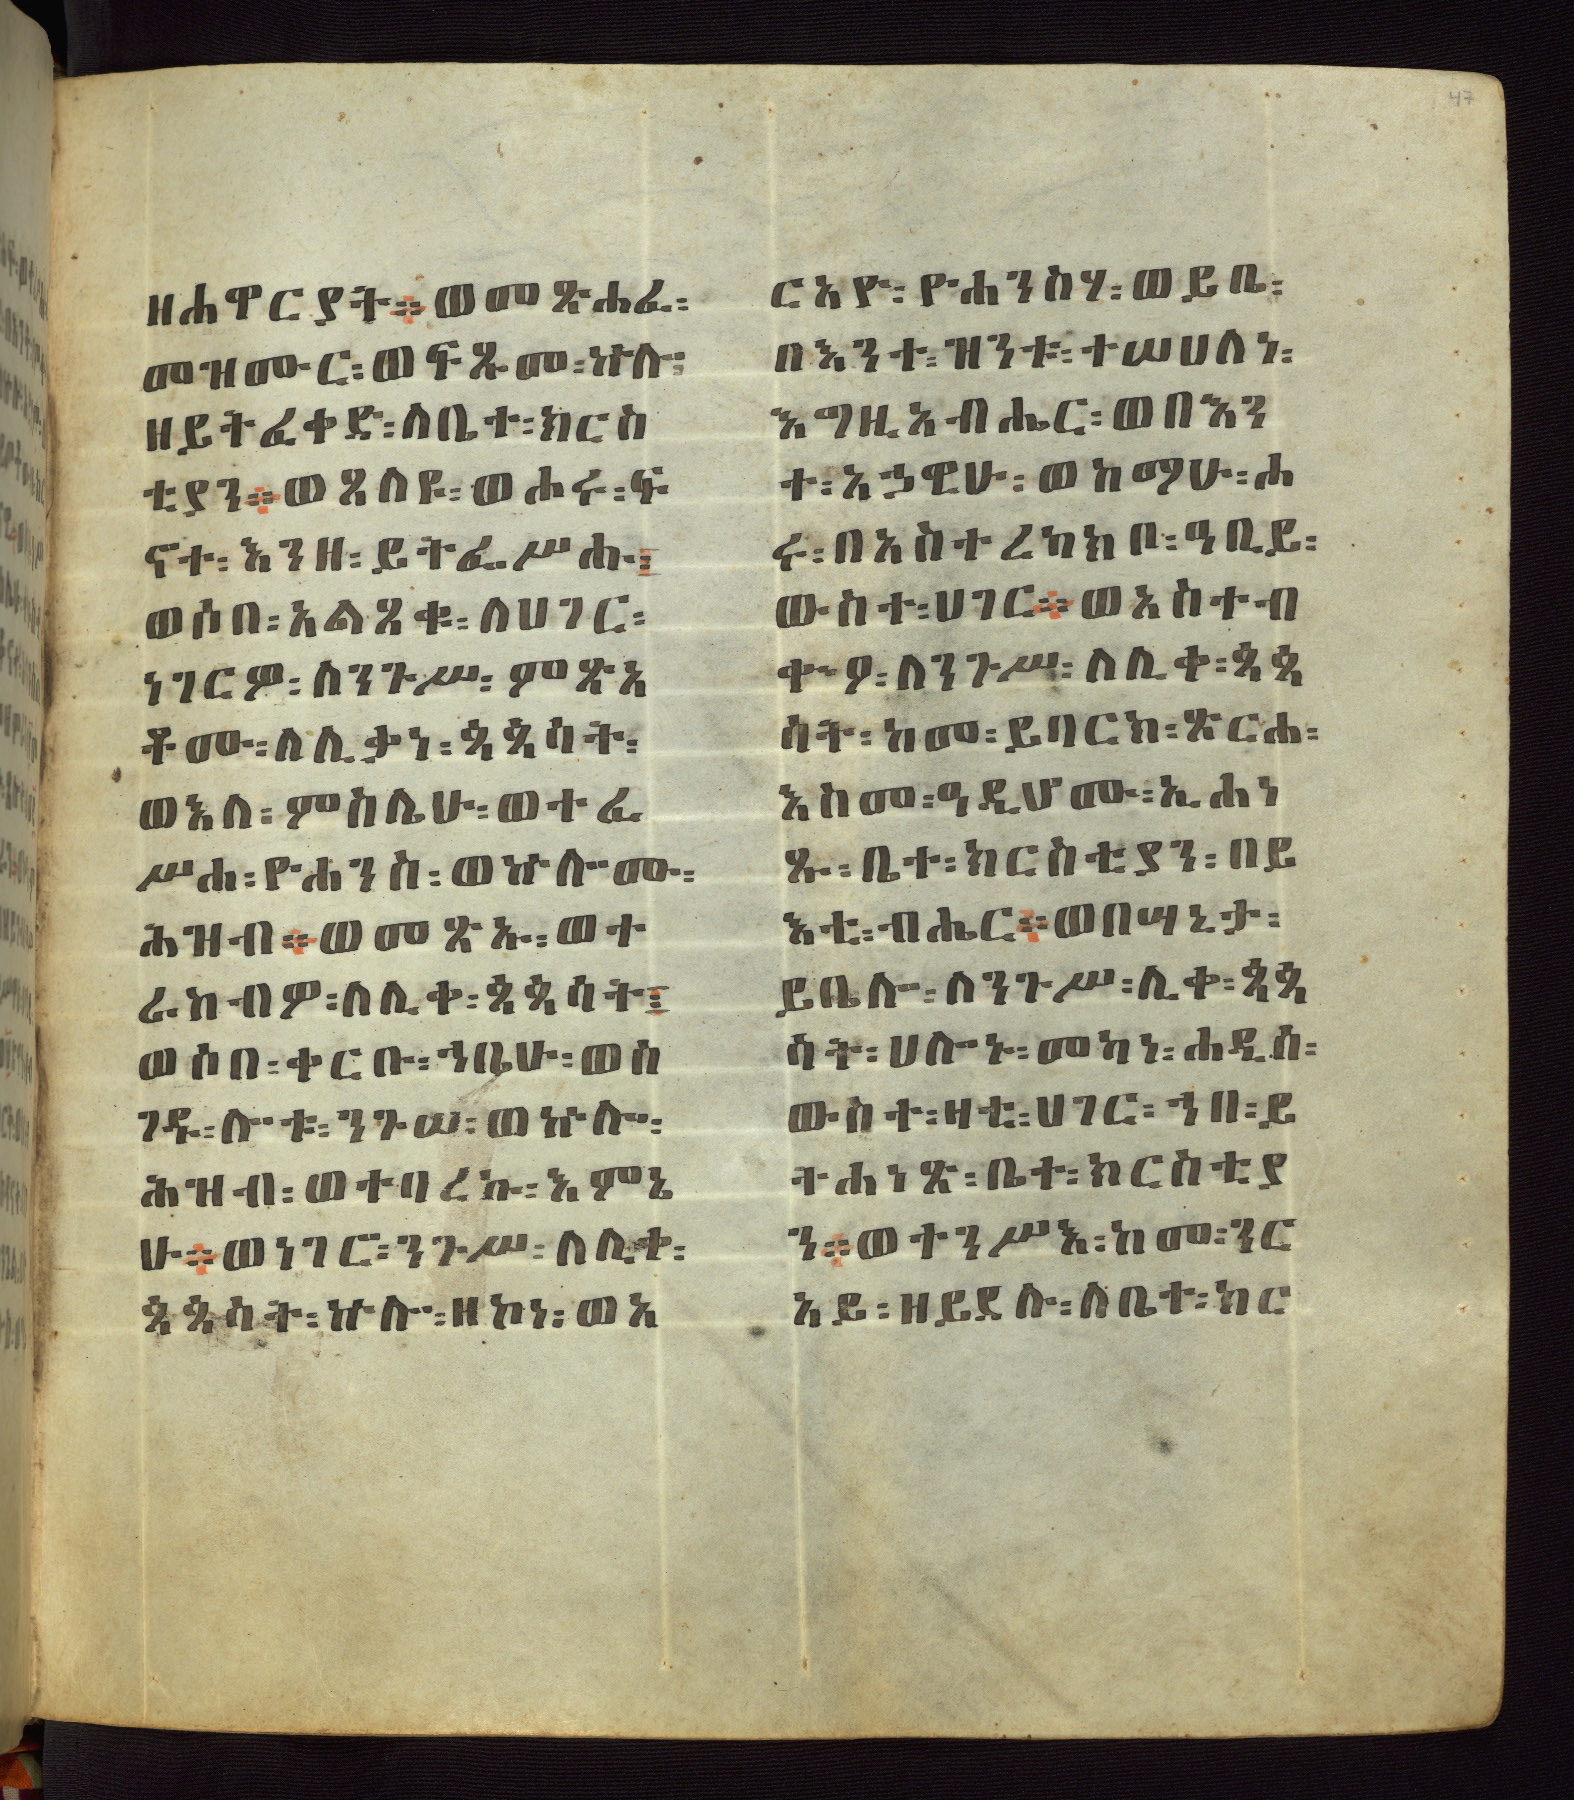 47
ዘሐዋርያት። ወመጽሐፈ፡
መዝሙር፡ ወፍጹመ፡ ኵሉ፡
ዘይትፈቀድ፡ ለቤተ፡ ክርስ
ቲያን። ወጸለዩ፡ ወሐሩ፡ ፍ
ኖተ፡ እንዘ፡ ይትፌሥሑ፤
ወሶበ፡ አልጸቁ፡ ለሀገር፡
ነገርዎ፡ ለንጉሥ፡ ምጽአ
ቶሙ፡ ለሊቃነ፡ ጳጳሳት፡
ወእለ፡ ምስሌሁ፡ ወተፈ
ሥሐ፡ ዮሐንስ፡ ወኵሎሙ፡
ሕዝብ። ወመጽኡ፡ ወተ
ራከብዎ፡ ለሊቀ፡ ጳጳሳት፤
ወሶበ፡ ቀርቡ፡ ኀቤሁ፡ ወሰ
ገዱ፡ ሎቱ፡ ንጉሠ፡ ወኵሎ፡
ሕዝብ፡ ወተባረኩ፡ እምኔ
ሁ። ወነገር፡ ንጉሥ፡ ለሊቀ፡
ጳጳሳት፡ ኵሎ፡ ዘኮነ፡ ወአ
ርአዮ፡ ዮሐንስሃ፡ ወይቤ፡
በእንተ፡ ዝንቱ፡ ተሠሀለነ፡
እግዚአብሔር፡ ወበእን
ተ፡ አኃዊሁ፡ ወከማሁ፡ ሐ
ሩ፡ በአስተረካክቦ፡ ዓቢይ፡
ውስተ፡ ሀገር። ወአስተብ
ቍዖ፡ ለንጉሥ፡ ለሊቀ፡ ጳጳ
ሳት፡ ከመ፡ ይባርክ፡ ጽርሐ፡
እስመ፡ ዓዲሆሙ፡ ኢሐነ
ጹ፡ ቤተ፡ ክርስቲያን፡ በይ
እቲ፡ ብሔር። ወበሣኒታ፡
ይቤሎ፡ ለንጉሥ፡ ሊቀ፡ ጳጳ
ሳት፡ ሀሎኑ፡ መካነ፡ ሐዲስ፡
ውስተ፡ ዛቲ፡ ሀገር፡ ኀበ፡ ይ
ትሐነጽ፡ ቤተ፡ ክርስቲያ
ን። ወተንሥእ፡ ከመ፡ ንር
አይ፡ ዘይደሉ፡ ለቤተ፡ ክር